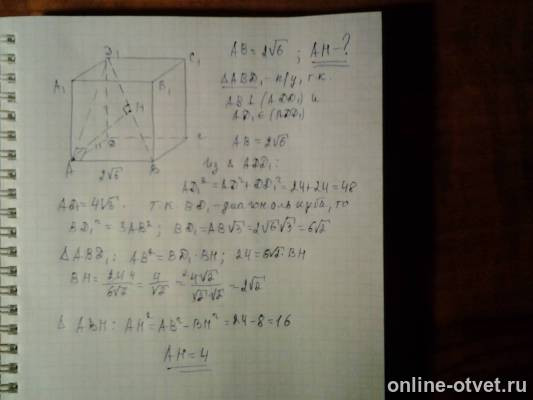 AB = 2√6 ; AH - ?
△ABD₁ - п/у, т.к.
AB ⊥ (ADD₁) и
AD₁ ∈ (ADD₁)
AB = 2√6
Из △ ADD₁:
AD₁² = AD² + DD₁² = 24+24 = 48
AD₁ = 4√3. т.к. BD₁ - диагональ куба, то
BD₁² = 3AB² ; BD₁ = AB√3 = 2√6√3 = 6√2
△ABD₁: AB² = BD₁·BH ; 24 = 6√2·BH
BH = 24/6√2 = 4/√2 = 4√2/√2·√2 = 2√2
△ ABH: AH² = AB² - BH² = 24 - 8 = 16
AH = 4
D₁
C₁
A₁
B₁
H
D
C
A
B
2√6
online-otvet.ru